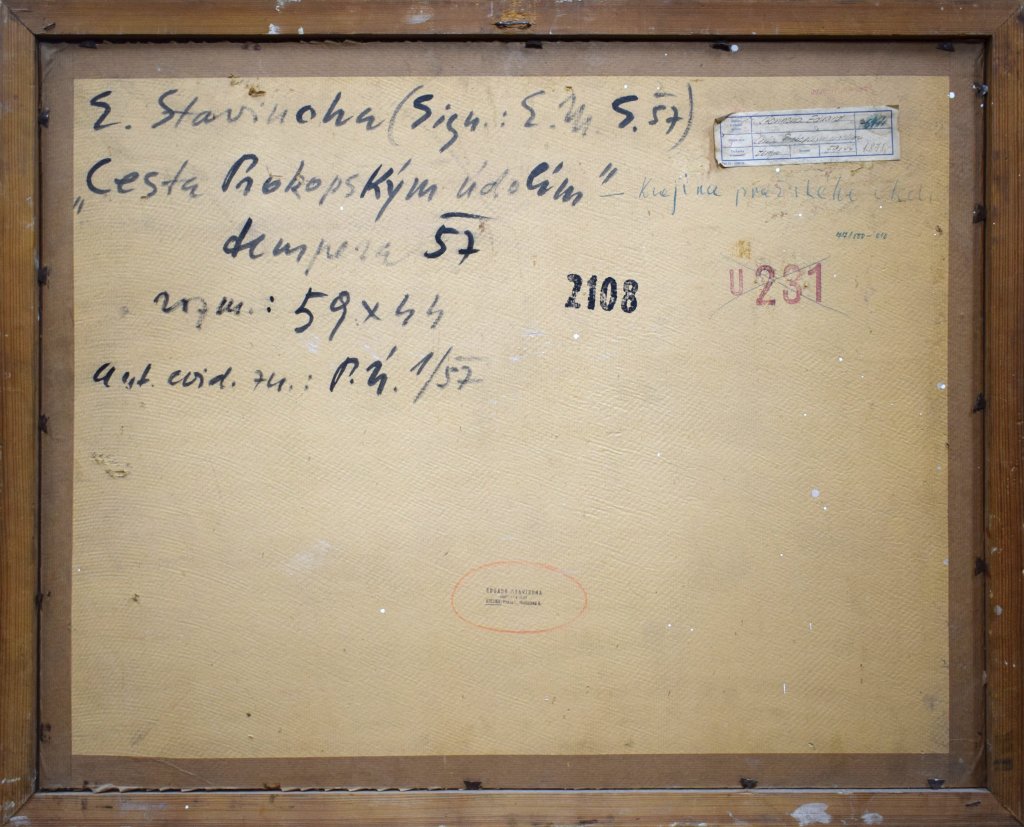 E. Stavinoha (Sign.: E. M. S. 57)
„Cesta Prokopským údolím" – Krajina pražského okolí
tempera 57
rozm.: 59 x 44
aut. evid. zn.: P.Ú. 1/57
2108
U 231
EDUARD STAVINOHA